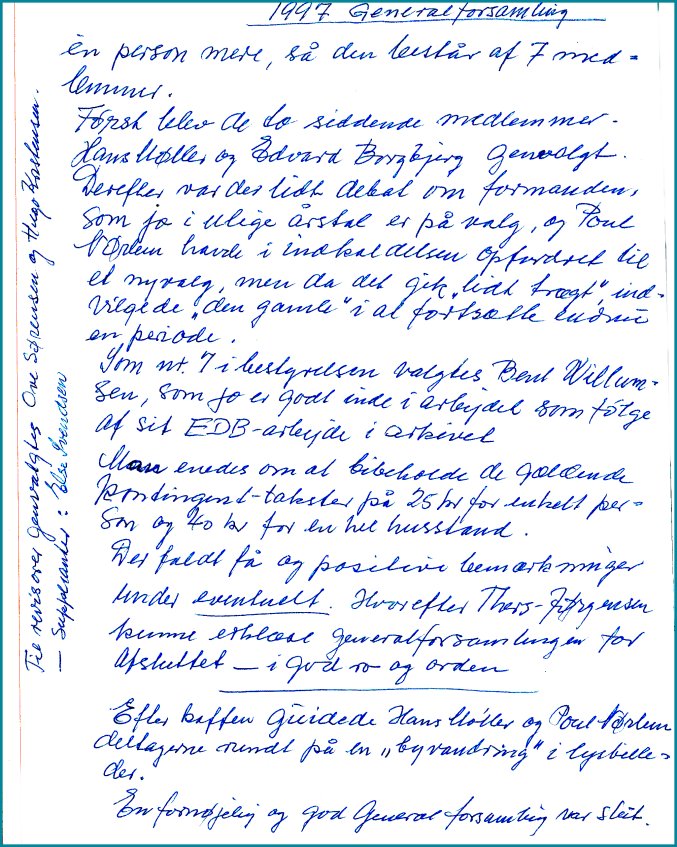 1997 Generalforsamling
én person mere, så den består af 7 med=
lemmer.
Først blev de to siddende medlemmer -
Hans Møller og Edvard Borgbjerg Genvalgt.
Derefter var der lidt debat om formanden,
som jo i ulige årstal er på valg, og Poul
Nørlem havde i indkaldelsen opfordret til
et nyvalg, men da det gik „lidt trægt", ind-
vilgede „den gamle" i at fortsætte endnu
en periode.
Som nr. 7 i bestyrelsen valgtes Bent Willum-
sen, som jo er godt inde i arbejdet som følge
af sit EDB-arbejde i arkivet
Man enedes om at bibeholde de gældende
kontingent-takster på 25 kr for enkelt per-
son og 40 kr for en hel husstand.
Der faldt få og positive bemærkninger
under eventuelt. Hvorefter Thers-Jørgensen
kunne erklære generalforsamlingen for
Afsluttet — i god ro og orden
Efter kaffen Guidede Hans Møller og Poul Nørlem
deltagerne rundt på en „byvandring" i lysbille-
der.
En fornøjelig og god Generalforsamling var slut.
Til revisorer genvalgtes Ove Sørensen og Hugo
— Suppleanter: Else Svendsen